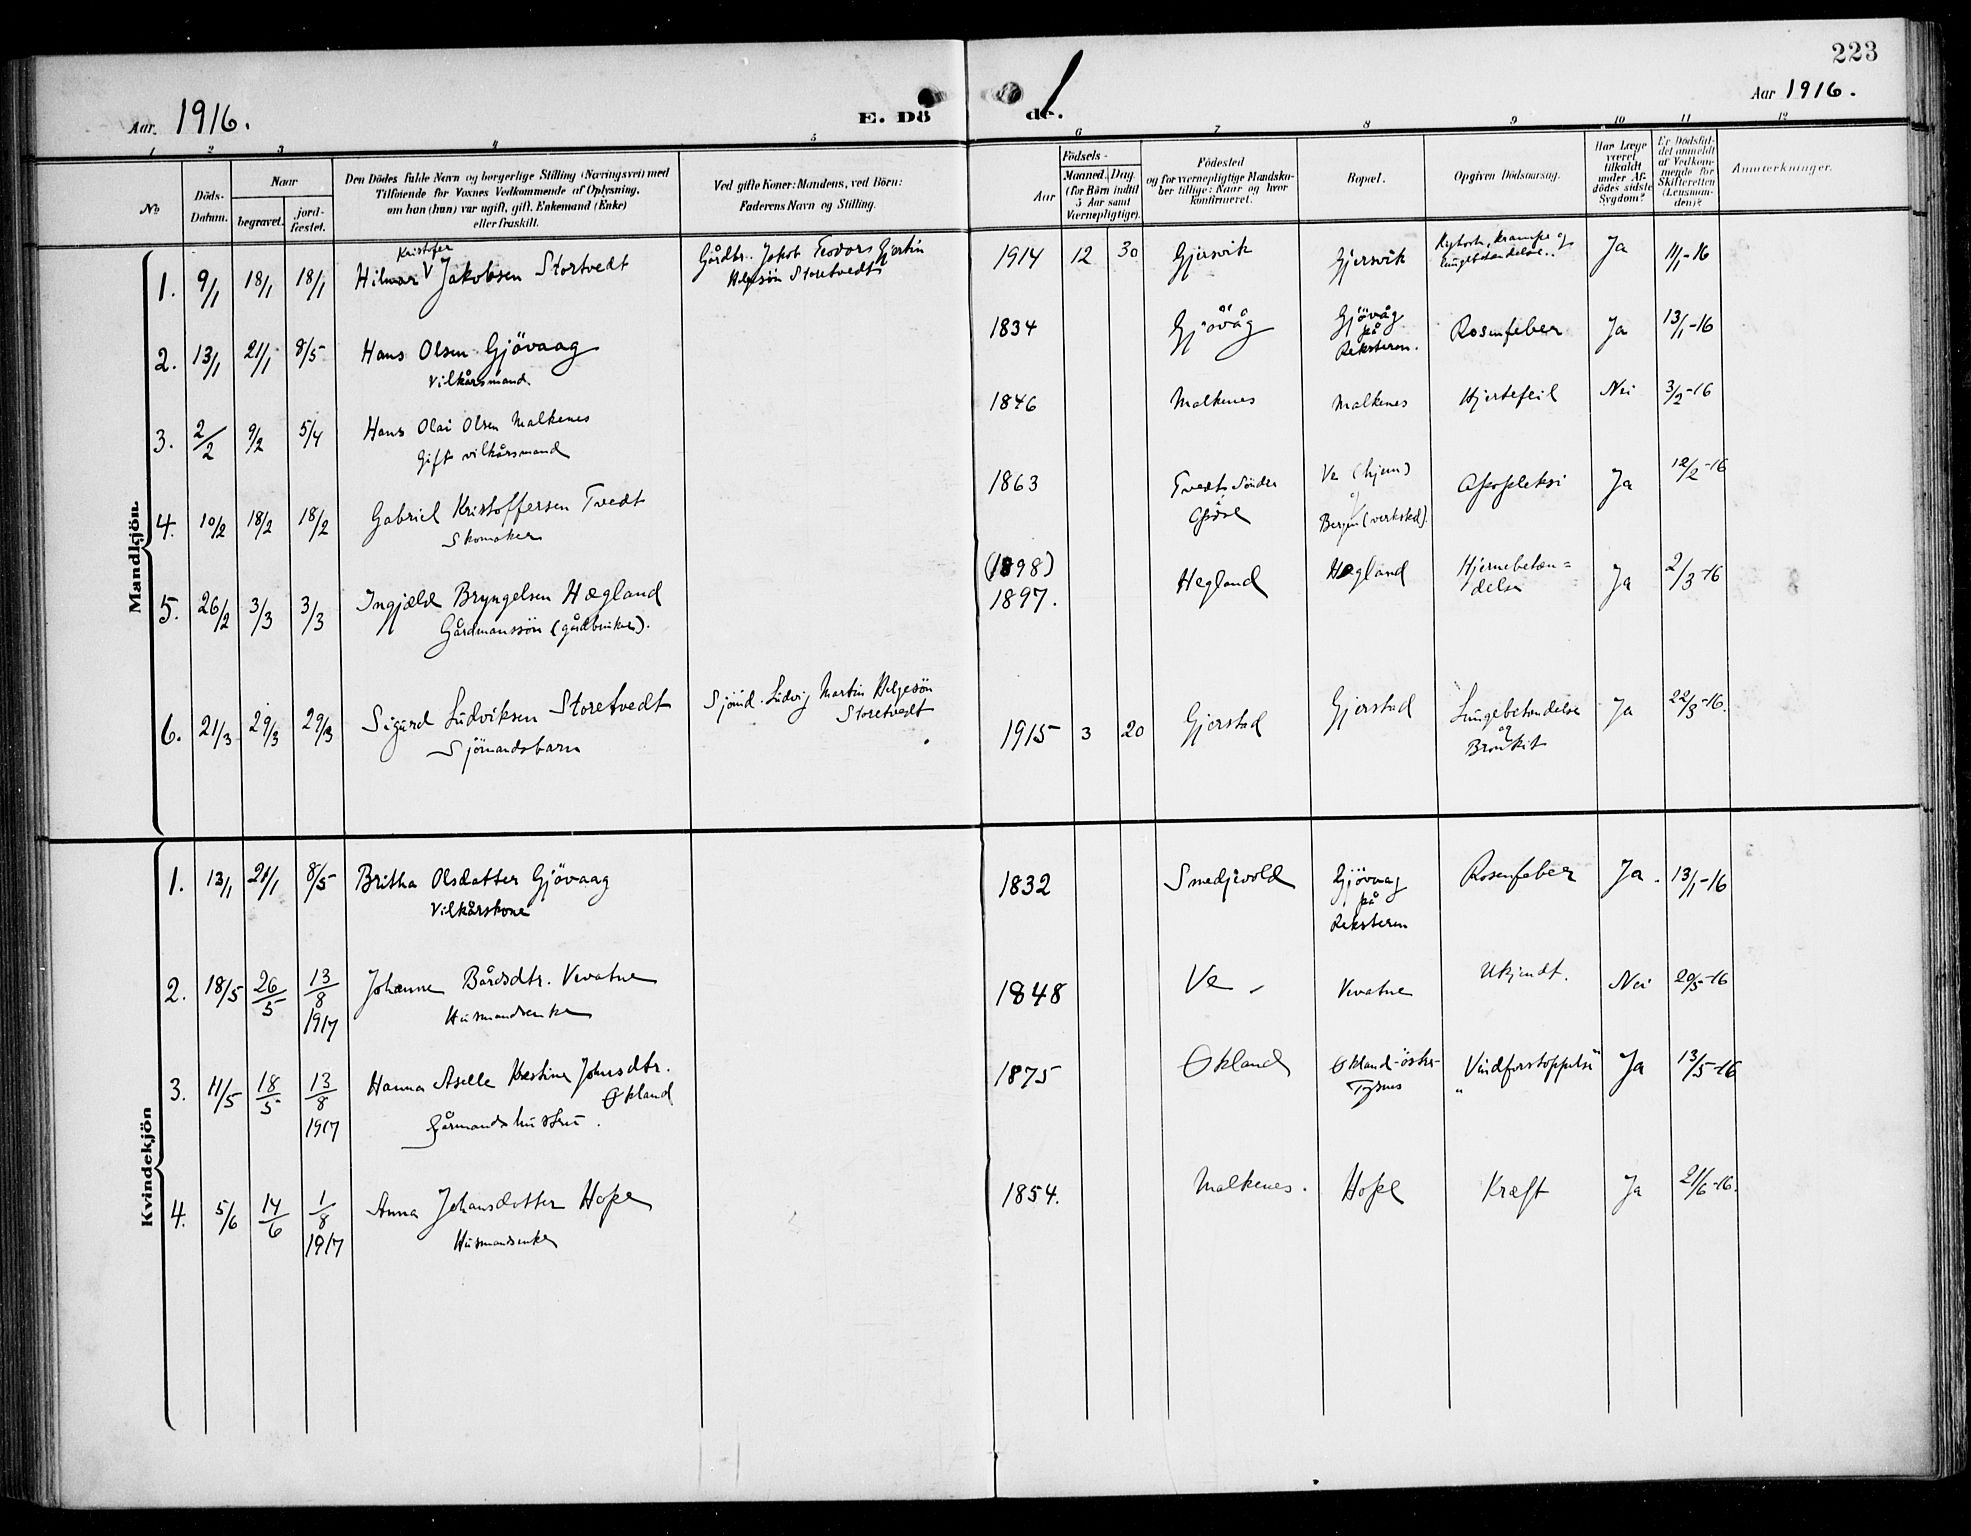 223
Aar. 1916.
E. Dö de.
Aar 1916.
1 2 3 4 5 6 7 8 9 10 11 12
No
Döds-Datum.
Naar
begravet.
jord-fæstet.
Den Dödes fulde Navn og borgerlige Stilling (Næringsvei) med
Tilföiende for Voxnes Vedkommende af Oplysning,
om han (hun) var ugift, gift, Enkemand (Enke)
eller fraskilt.
Ved gifte Koner: Mandens, ved Börn:
Faderens Navn og Stilling.
Födsels-
Aar
Maaned. Dag.
(for Börn indtil
5 Aar samt
Værnepligtige).
Födested
og for værnepligtige Mandska-
ber tillige: Naar og hvor
konfirmeret.
Bopæl.
Opgiven Dödsaarsag.
Har Læge
været
tilkaldt
under Af-
dödes sidste
Sygdom?
Er Dödsfal-
det anmeldt
af Vedkom-
mende for
Skifteretten
(Lensman-
den)?
Anmærkninger.
Mandkjön.
1. 9/1 18/1 18/1 Hilmar Kristofer Jakobsen Stortvedt
Gårdbr. Jakob Teodor Gjertin
Helgesön Storetvedt
1914 12 30 Gjersvik Gjersvik Kighoste, krampe og
lungebetændelse. Ja 11/1-16
2. 13/1 21/1 8/5 Hans Olsen Gjövaag
Vilkårsmand.
1834 Gjövåg Gjövåg
på
Reksteren. Rosenfeber Ja 13/1-16
3. 2/2 9/2 5/4 Hans Olai Olsen Malkenes
Gift vilkårsmand
1846 Malkenes Malkenes Hjertefeil Nei 3/2-16
4. 10/2 18/2 18/2 Gabriel Kristoffersen Tvedt
Skomaker
1863 Tvedt Söndre
Ve (hjem)
og
Bergen (verksted). Apopleksi Ja 12/2-16
5. 26/2 3/3 3/3 Ingjæld Bryngelsen Hægland
Gårdmanssön (gårdbruker).
(1898)
1897. Hegland Hegland Hjernebetæn=
delse Ja 2/3-16
6. 21/3 29/3 29/3 Sigurd Ludviksen Storetvedt
Sjömandsbarn
Sjömd. Ludvig Martin Helgesön
Storetvedt
1915 3 20 Gjerstad Gjerstad Lungebetændelse
og
Bronkit Ja 22/3-16.
Kvindekjön
1. 13/1 21/1 8/5 Britha Olsdatter Gjövaag
Vilkårskone
1832 Smedjevold Gjövaag
på
Reksteren Rosenfeber Ja. 13/1-16
2. 18/5 26/5 13/8 1917 Johanne Bårdsdtr. Vevatne
Husmandsenke
1848 Ve Vevatne Ukjendt. Nei 20/5-16
3. 11/5 18/5 13/8 1917 Hanna Aselle Kristine Johnsdtr.
Økland
Gårmandshustru.
1875 Økland Økland-östre-
Tysnes "Vindforstoppelse" Ja 13/5-16
4. 5/6 14/6 1/8 1917 Anna Johansdatter Hope
Husmandsenke
1854. Malkenes. Hope Kræft Ja 21/6-16.